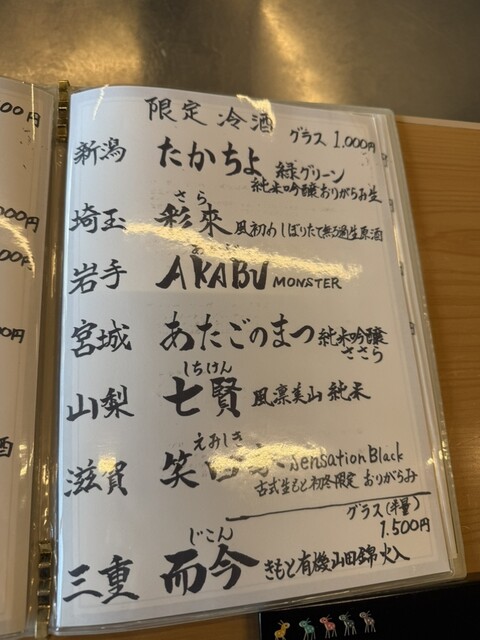 限定 冷酒
グラス 1.000円
新潟 たかちよ 緑グリーン
純米吟醸おりがらみ生
さら
埼玉 彩來 風初のしぼりたて無ろ過生原酒
あかぶ
岩手 AKABU MONSTER
宮城 あたごのまつ 純米吟醸
ささら
しちけん
山梨 七賢 風凛美山 純米
えみしき
滋賀 笑 Sensation Black
古式生もと初冬限定 おりがらみ
グラス(半量)
1.500円
じこん
三重 而今 きもと有機山田錦 火入
00円
000円
00円
00円
酒